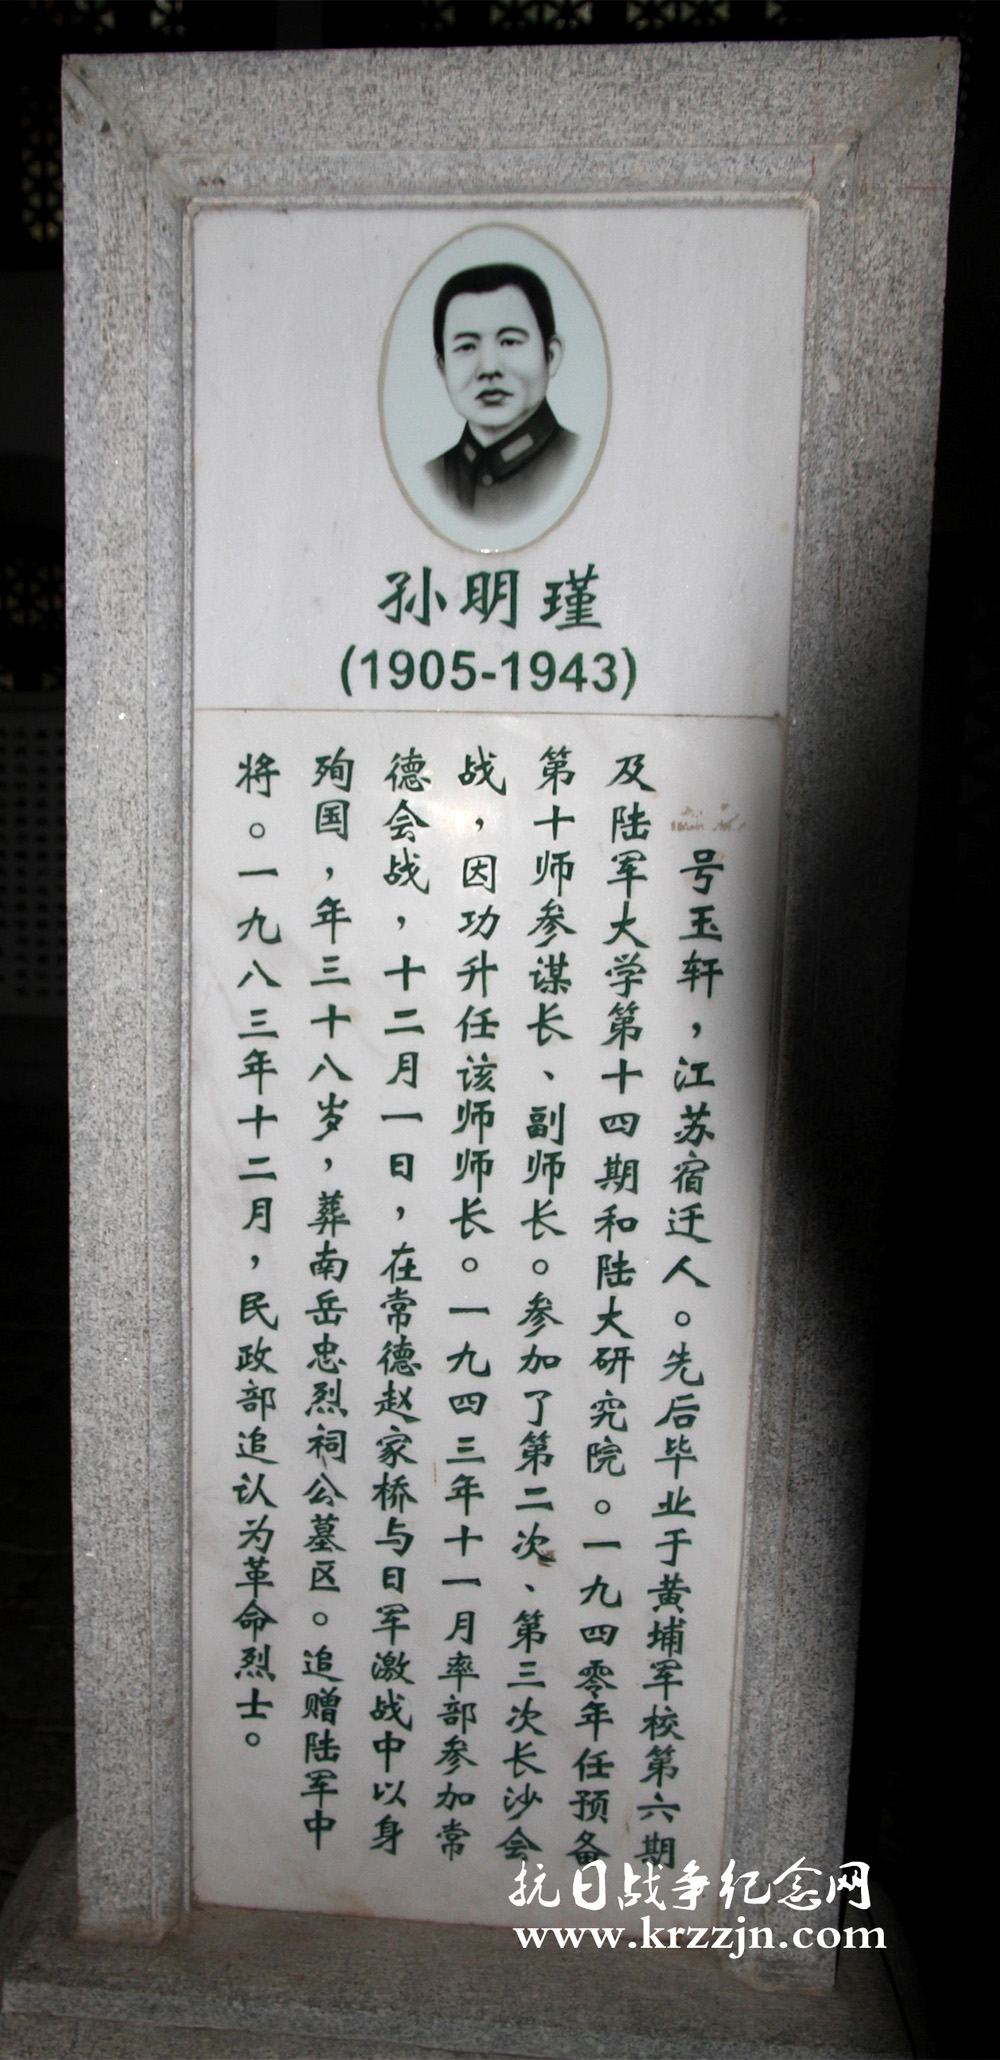 孙明瑾
(1905-1943)
号玉轩，江苏宿迁人。先后毕业于黄埔军校第六期
及陆军大学第十四期和陆大研究院。一九四零年任预备
第十师参谋长、副师长。参加了第二次、第三次长沙会
战，因功升任该师师长。一九四三年十一月率部参加常
德会战，十二月一日，在常德赵家桥与日军激战中以身
殉国，年三十八岁，葬南岳忠烈祠公墓区。追赠陆军中
将。一九八三年十二月，民政部追认为革命烈士。
抗日战争纪念网
www.krzzjn.com